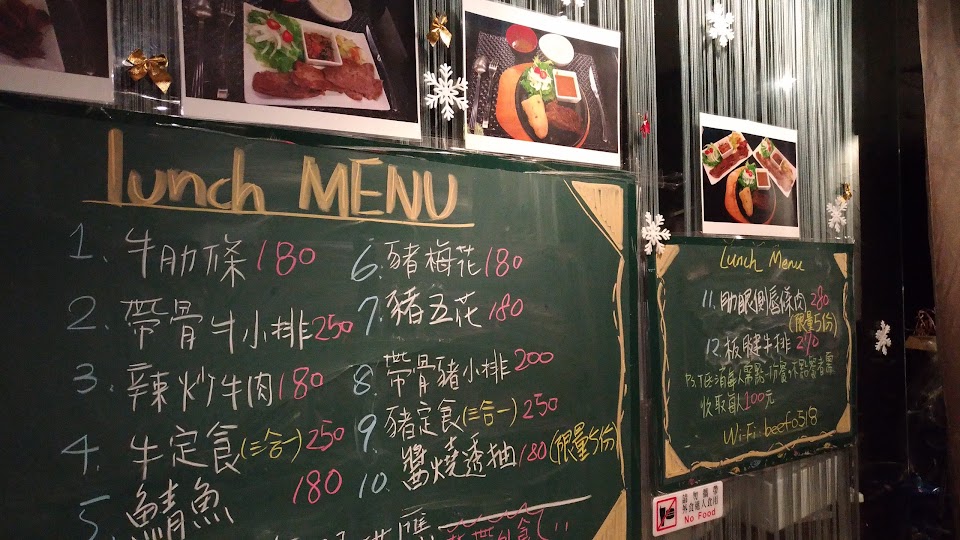 lunch MENU
1. 牛肋條 180
2. 帶骨牛小排 250
3. 辣炒牛肉 180
4. 牛定食(三合一) 250
5. 鯖魚 180
6. 豬梅花 180
7. 豬五花 180
8. 帶骨豬小排 200
9. 豬定食(三合一) 250
10. 醬燒透抽 180 (限量5份)
Lunch Menu
11. 肋眼側唇條肉 280
(限量5份)
12. 板腱牛排 270
P.S. 低消每人需點一份餐、不點餐者需
收取每人100元
Wi-Fi: beef0518
請勿攜帶
外食進入食用
No Food